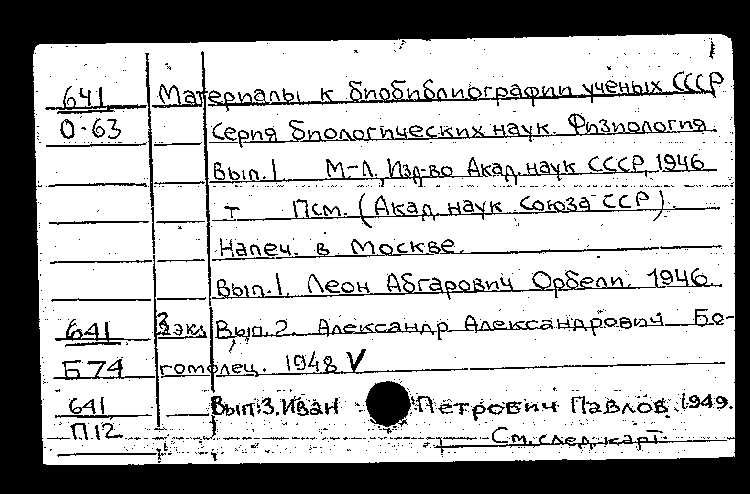 1
641 Материалы к биобиблиографии ученых СССР
О-63 Серия биологических наук. Физиология.
Вып.1 М-Л, Изд-во Акад. наук СССР, 1946
т Псм. (Акад. наук Союза ССР).
Напеч. в Москве.
Вып.1. Леон Абгарович Орбели. 1946.
641 3экз Вып.2. Александр Александрович Бо-
Б74 гомолец. 1948 V
641 Вып.3. Иван Петрович Павлов. 1949.
П12 См. след. карт.